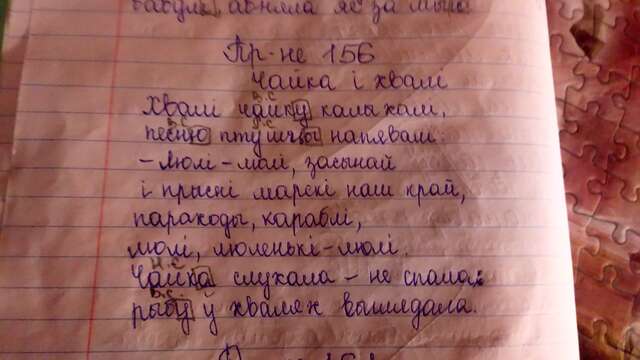 бабулю, абняла яе за шыю.
Пр-не 156
Чайка і хвалі
Хвалі чайку калыхалі,
песню птушцы напявалі:
- Люлі-май, засынай
і прысні марскі наш край,
параходы, караблі,
люлі, люленькі-люлі.
Н.С.
Чайка слухала - не спала,
В.С.
рыбу ў хвалях выглядала.